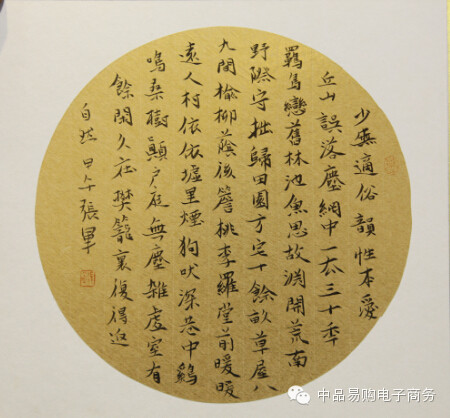 少無適俗韻性本愛
丘山誤落塵網中一去三十年
羈鳥戀舊林池魚思故淵開荒南
野際守拙歸田園方宅十餘畝草屋八
九間榆柳蔭後簷桃李羅堂前暖暖
遠人村依依墟里煙狗吠深巷中鷄
鳴桑樹顛戶庭無塵雜虛室有
餘閒久在樊籠裏復得返
自然 甲午 張
中品易购电子商务